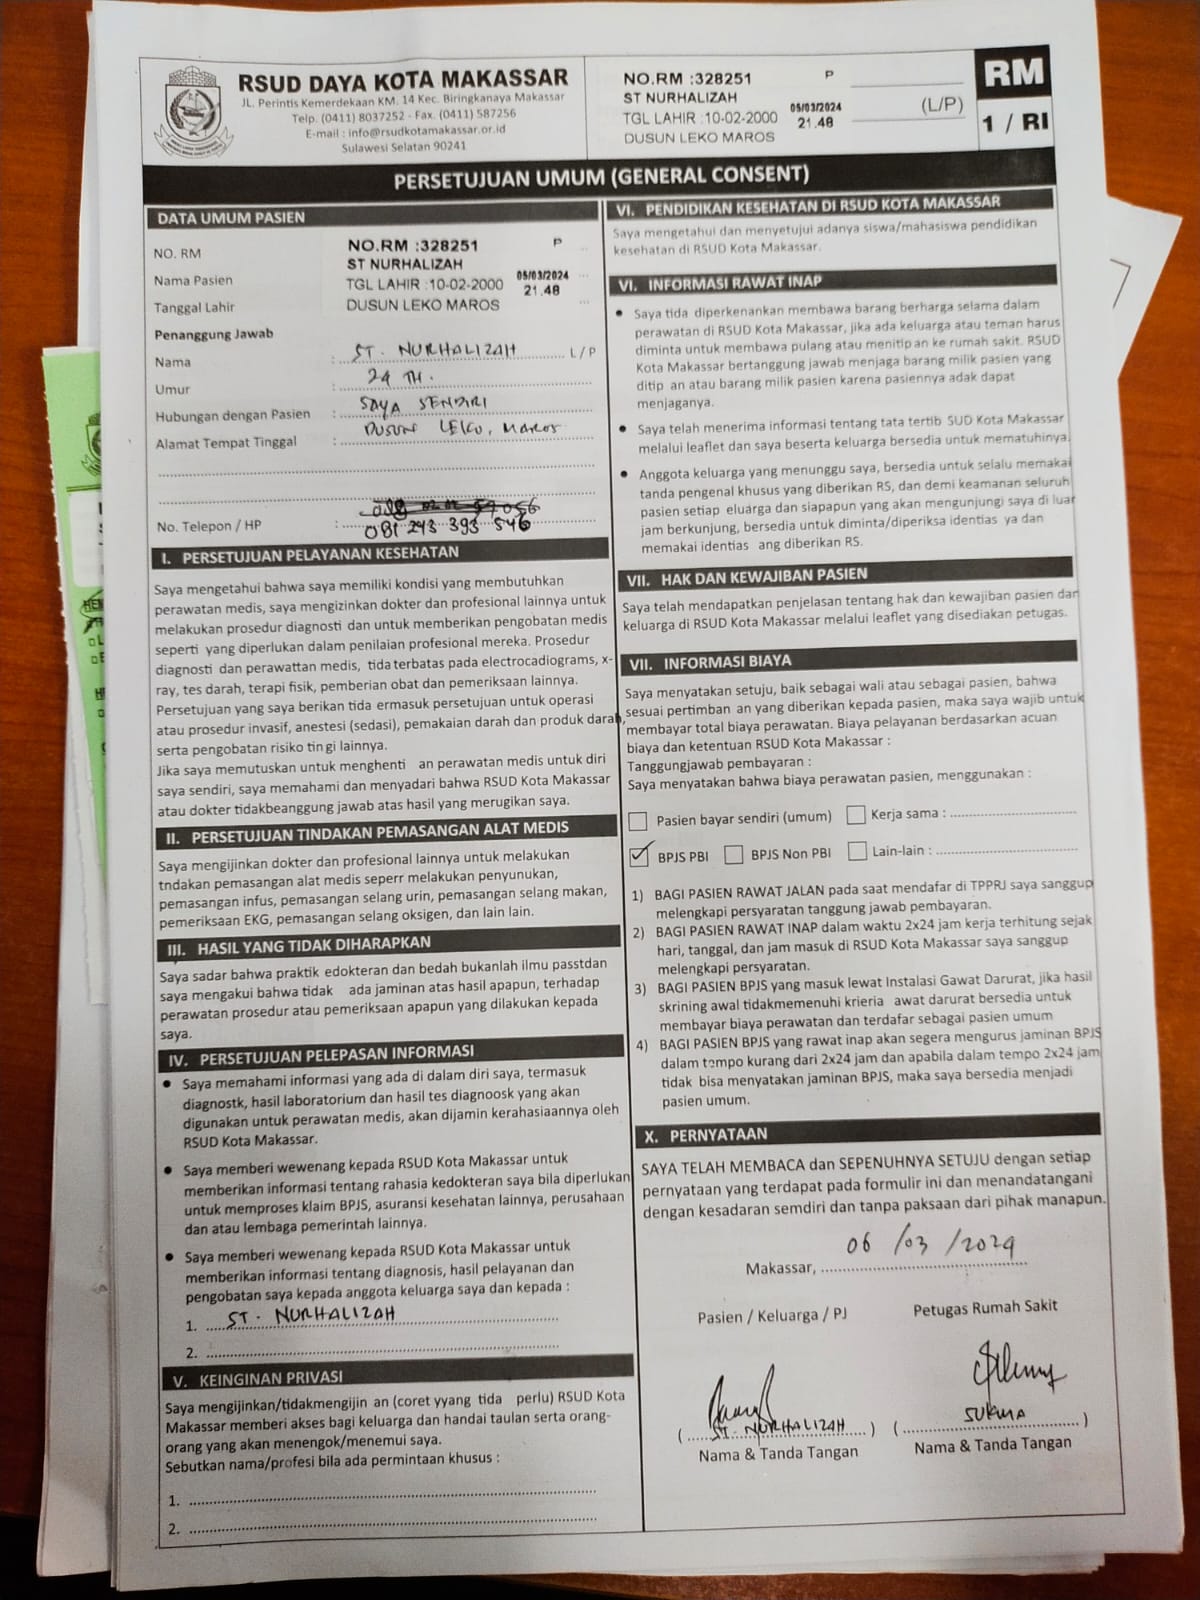 RSUD DAYA KOTA MAKASSAR
JL. Perintis Kemerdekaan KM. 14 Kec. Biringkanaya Makassar
Telp. (0411) 8037252 - Fax. (0411) 587256
E-mail : info@rsudkotamakassar.or.id
Sulawesi Selatan 90241
NO.RM :328251 P
ST NURHALIZAH
TGL LAHIR :10-02-2000 05/03/2024 21.48
DUSUN LEKO MAROS
(L/P)
RM
1 / RI
PERSETUJUAN UMUM (GENERAL CONSENT)
DATA UMUM PASIEN
NO. RM
Nama Pasien
Tanggal Lahir
NO.RM :328251 P
ST NURHALIZAH
TGL LAHIR :10-02-2000 05/03/2024 21.48
DUSUN LEKO MAROS
Penanggung Jawab
Nama : ST. NURHALIZAH L / P
Umur : 24 TH.
Hubungan dengan Pasien : SAYA SENDIRI
Alamat Tempat Tinggal : DUSUN LEKO, MAROS
No. Telepon / HP : 081 243 393 546
I. PERSETUJUAN PELAYANAN KESEHATAN
Saya mengetahui bahwa saya memiliki kondisi yang membutuhkan
perawatan medis, saya mengizinkan dokter dan profesional lainnya untuk
melakukan prosedur diagnosti dan untuk memberikan pengobatan medis
seperti yang diperlukan dalam penilaian profesional mereka. Prosedur
diagnosti dan perawattan medis, tida terbatas pada electrocadiograms, x-
ray, tes darah, terapi fisik, pemberian obat dan pemeriksaan lainnya.
Persetujuan yang saya berikan tida ermasuk persetujuan untuk operasi
atau prosedur invasif, anestesi (sedasi), pemakaian darah dan produk darah,
serta pengobatan risiko tin gi lainnya.
Jika saya memutuskan untuk menghenti an perawatan medis untuk diri
saya sendiri, saya memahami dan menyadari bahwa RSUD Kota Makassar
atau dokter tidakbeanggung jawab atas hasil yang merugikan saya.
II. PERSETUJUAN TINDAKAN PEMASANGAN ALAT MEDIS
Saya mengijinkan dokter dan profesional lainnya untuk melakukan
tndakan pemasangan alat medis seperr melakukan penyunukan,
pemasangan infus, pemasangan selang urin, pemasangan selang makan,
pemeriksaan EKG, pemasangan selang oksigen, dan lain lain.
III. HASIL YANG TIDAK DIHARAPKAN
Saya sadar bahwa praktik edokteran dan bedah bukanlah ilmu passtdan
saya mengakui bahwa tidak ada jaminan atas hasil apapun, terhadap
perawatan prosedur atau pemeriksaan apapun yang dilakukan kepada
saya.
IV. PERSETUJUAN PELEPASAN INFORMASI
● Saya memahami informasi yang ada di dalam diri saya, termasuk
diagnostk, hasil laboratorium dan hasil tes diagnoosk yang akan
digunakan untuk perawatan medis, akan dijamin kerahasiaannya oleh
RSUD Kota Makassar.
● Saya memberi wewenang kepada RSUD Kota Makassar untuk
memberikan informasi tentang rahasia kedokteran saya bila diperlukan
untuk memproses klaim BPJS, asuransi kesehatan lainnya, perusahaan
dan atau lembaga pemerintah lainnya.
● Saya memberi wewenang kepada RSUD Kota Makassar untuk
memberikan informasi tentang diagnosis, hasil pelayanan dan
pengobatan saya kepada anggota keluarga saya dan kepada :
1. ST. NURHALIZAH
2.
V. KEINGINAN PRIVASI
Saya mengijinkan/tidakmengijin an (coret yyang tida perlu) RSUD Kota
Makassar memberi akses bagi keluarga dan handai taulan serta orang-
orang yang akan menengok/menemui saya.
Sebutkan nama/profesi bila ada permintaan khusus :
1.
2.
VI. PENDIDIKAN KESEHATAN DI RSUD KOTA MAKASSAR
Saya mengetahui dan menyetujui adanya siswa/mahasiswa pendidikan
kesehatan di RSUD Kota Makassar.
VI. INFORMASI RAWAT INAP
● Saya tida diperkenankan membawa barang berharga selama dalam
perawatan di RSUD Kota Makassar, jika ada keluarga atau teman harus
diminta untuk membawa pulang atau menitip an ke rumah sakit. RSUD
Kota Makassar bertanggung jawab menjaga barang milik pasien yang
ditip an atau barang milik pasien karena pasiennya adak dapat
menjaganya.
● Saya telah menerima informasi tentang tata tertib SUD Kota Makassar
melalui leaflet dan saya beserta keluarga bersedia untuk mematuhinya.
● Anggota keluarga yang menunggu saya, bersedia untuk selalu memakai
tanda pengenal khusus yang diberikan RS, dan demi keamanan seluruh
pasien setiap eluarga dan siapapun yang akan mengunjungi saya di luar
jam berkunjung, bersedia untuk diminta/diperiksa identias ya dan
memakai identias ang diberikan RS.
VII. HAK DAN KEWAJIBAN PASIEN
Saya telah mendapatkan penjelasan tentang hak dan kewajiban pasien dan
keluarga di RSUD Kota Makassar melalui leaflet yang disediakan petugas.
VII. INFORMASI BIAYA
Saya menyatakan setuju, baik sebagai wali atau sebagai pasien, bahwa
sesuai pertimban an yang diberikan kepada pasien, maka saya wajib untuk
membayar total biaya perawatan. Biaya pelayanan berdasarkan acuan
biaya dan ketentuan RSUD Kota Makassar :
Tanggungjawab pembayaran :
Saya menyatakan bahwa biaya perawatan pasien, menggunakan :
☐ Pasien bayar sendiri (umum) ☐ Kerja sama :
☑ BPJS PBI ☐ BPJS Non PBI ☐ Lain-lain :
1) BAGI PASIEN RAWAT JALAN pada saat mendafar di TPPRJ saya sanggup
melengkapi persyaratan tanggung jawab pembayaran.
2) BAGI PASIEN RAWAT INAP dalam waktu 2x24 jam kerja terhitung sejak
hari, tanggal, dan jam masuk di RSUD Kota Makassar saya sanggup
melengkapi persyaratan.
3) BAGI PASIEN BPJS yang masuk lewat Instalasi Gawat Darurat, jika hasil
skrining awal tidakmemenuhi krieria awat darurat bersedia untuk
membayar biaya perawatan dan terdafar sebagai pasien umum
4) BAGI PASIEN BPJS yang rawat inap akan segera mengurus jaminan BPJS
dalam tempo kurang dari 2x24 jam dan apabila dalam tempo 2x24 jam
tidak bisa menyatakan jaminan BPJS, maka saya bersedia menjadi
pasien umum.
X. PERNYATAAN
SAYA TELAH MEMBACA dan SEPENUHNYA SETUJU dengan setiap
pernyataan yang terdapat pada formulir ini dan menandatangani
dengan kesadaran semdiri dan tanpa paksaan dari pihak manapun.
Makassar, 06 / 03 / 2024
Pasien / Keluarga / PJ Petugas Rumah Sakit
( ST. NURHALIZAH ) ( SUKMA )
Nama & Tanda Tangan Nama & Tanda Tangan